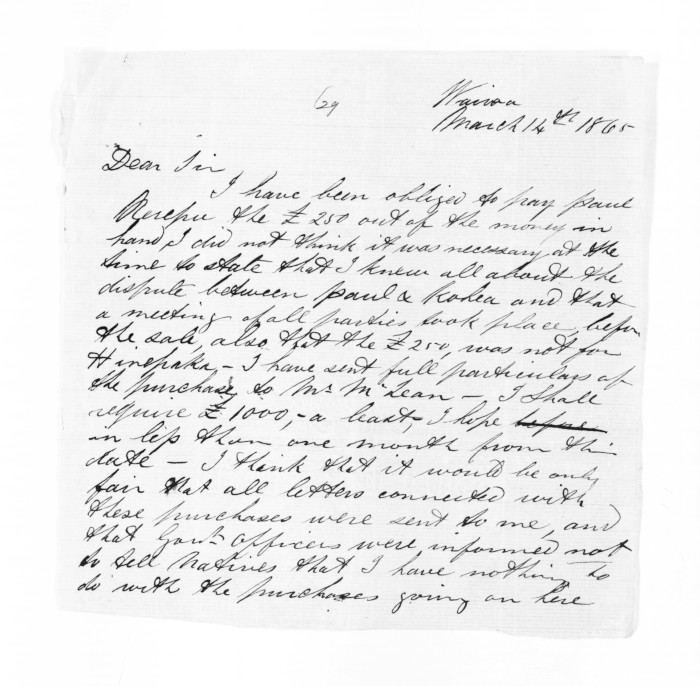 629
Wairoa
March 14th 1865
Dear Sir
I have been obliged to pay Paul
Rerepu the £250 out of the money in
hand, I did not think it was necessary at the
time to state that I knew all about the
dispute between Paul & Kohea and that
a meeting of all parties took place, before
the sale, also that the £250, was not for
Hinepaka, - I have sent full particulars of
the purchase to Mr McLean - I shall
require £1000, - a least, I hope before
in less than one month from this
date - I think that it would be only
fair that all letters connected with
these purchases were sent to me, and
that Govt Officers were, informed not
to tell Natives that I have nothing to
do with the purchases going on here